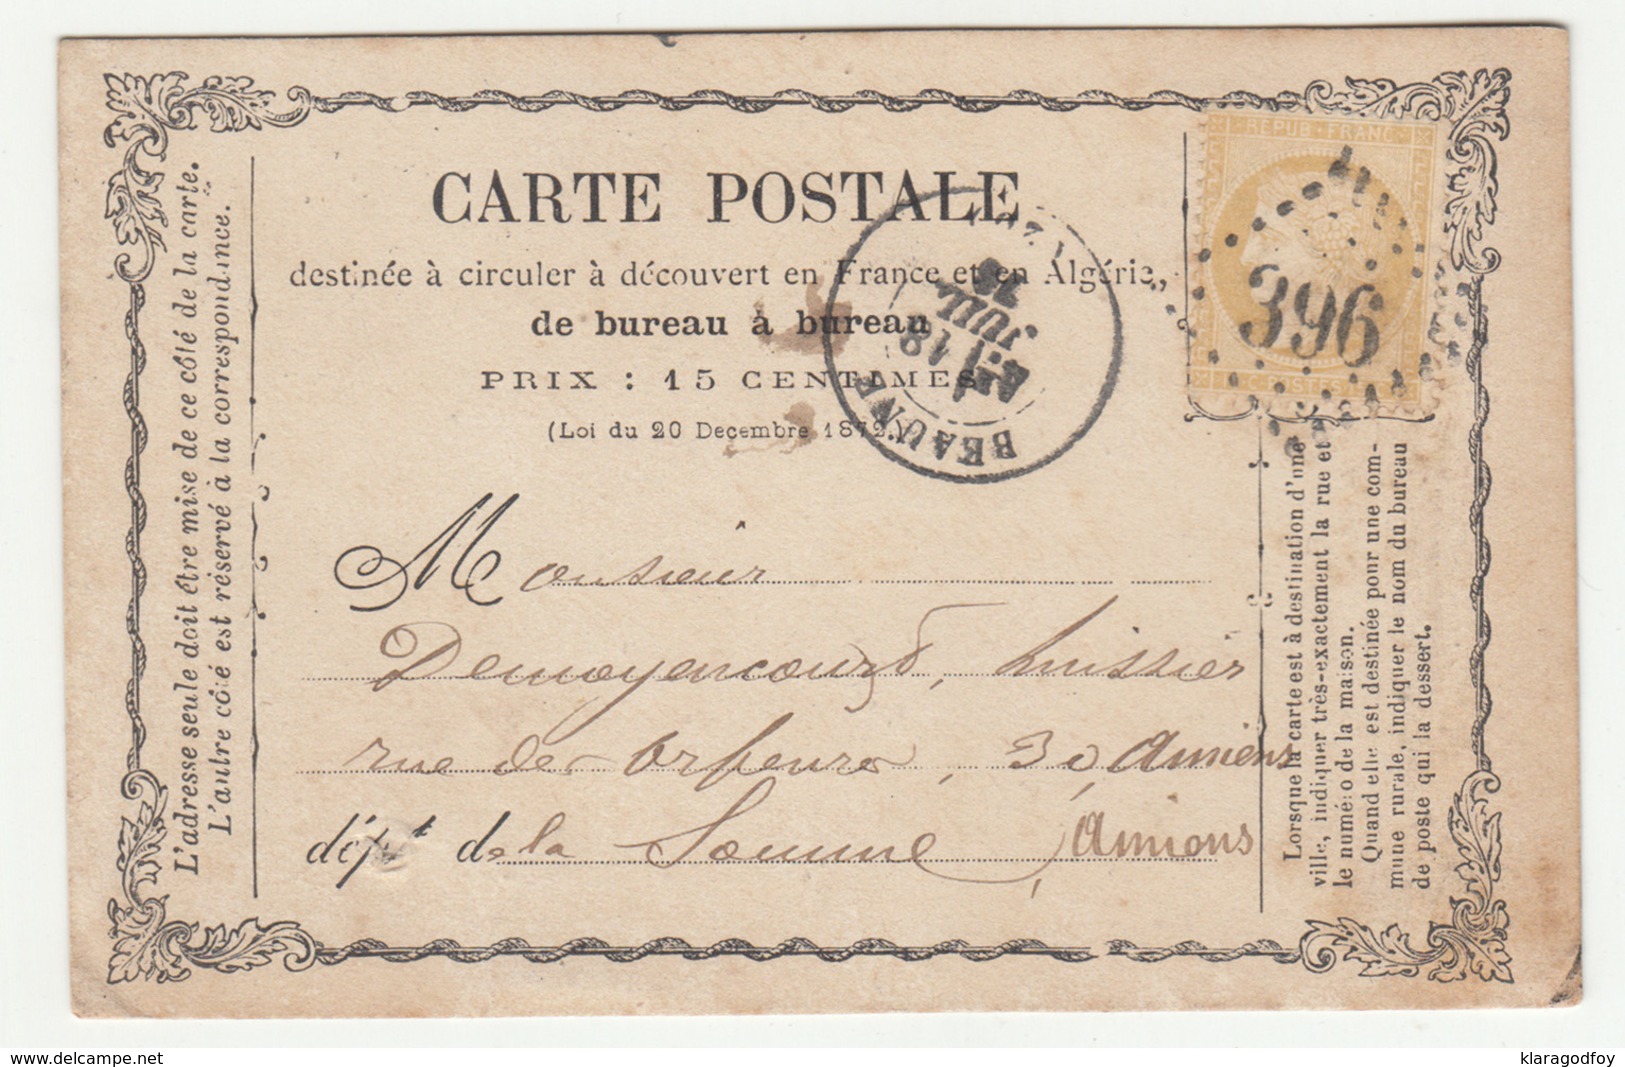 CARTE POSTALE
destinée à circuler à découvert en France et en Algérie,
de bureau à bureau
PRIX : 15 CENTIMES
(Loi du 20 Decembre 1872.)
REPUB · FRANC
POSTES
396
BEAUNE
18
JUIL
Monsieur
Demoyencourt, huissier
rue des Orfevres, 30 Amiens
dép.t de la Somme
Amiens
L'adresse seule doit être mise de ce côté de la carte.
L'autre côté est réservé à la correspondance.
Lorsque la carte est à destination d'une
ville, indiquer très-exactement la rue et
le numéro de la maison.
Quand elle est destinée pour une com-
mune rurale, indiquer le nom du bureau
de poste qui la dessert.
www.delcampe.net
klaragodfoy